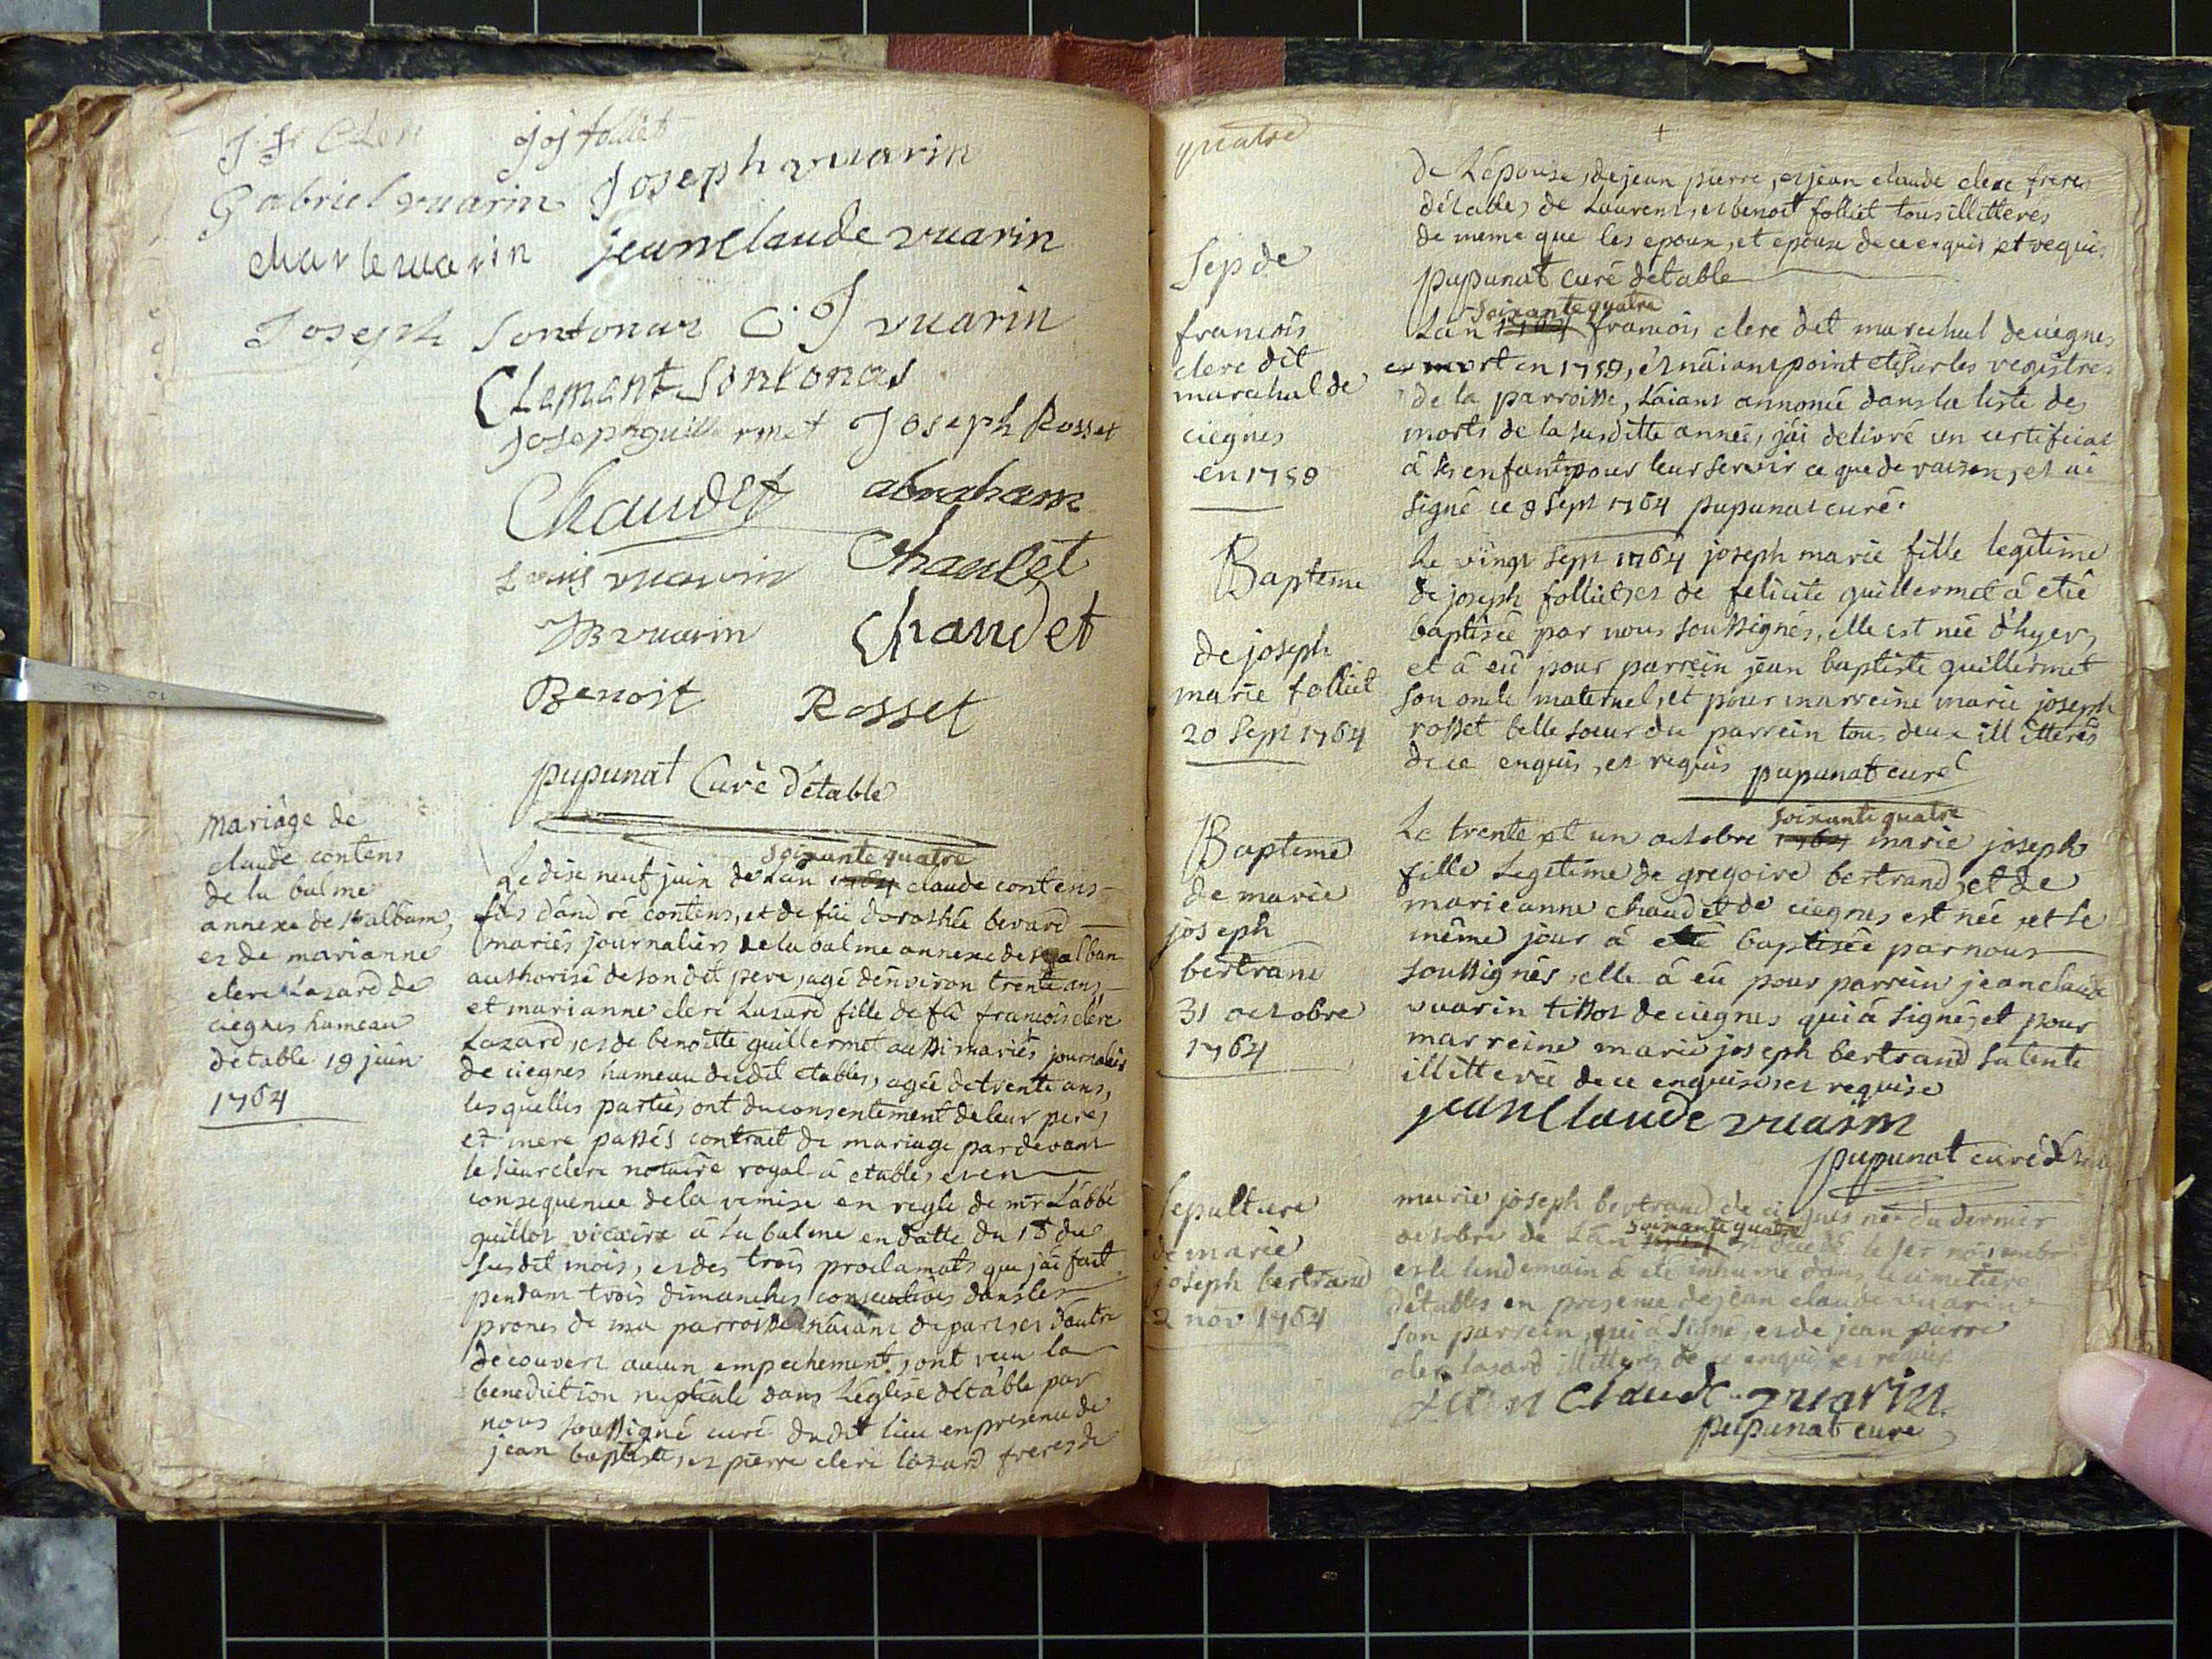 jos folliet
Gabriel vuarin Joseph vuarin
charle vuarin jeanclaude vuarin
Joseph Sontonas C J vuarin
Clement Sontonas
Joseph guillermet Joseph Rosset
Chaudet abraham
Louis vuarin Chaudet
JB vuarin Chaudet
Benoit Rosset
pupunat Curé d'étable
mariage de
claude contens
de la balme
annexe de st alban
et de marianne
clerc Lazard de
ciegnes hameau
détable 19 juin
1764
soixante quatre
Le dix neuf juin de Lan 1764 claude contens
fils dándré contens, et de füe dorothée berard
mariés journaliers de la balme annexe de st alban
authorisé de son dit pere, agé dénviron trente ans
et marianne clerc Lazard fille de fû francois clerc
Lazard, et de benoitte guillermet aussi mariés journaliers
de ciegnes hameau dudit etables, agée de trente ans,
lesquelles parties ont du consentement de leur pere,
et mere passés contrait de mariage pardevant
le sieur clerc notaire royal á etables, et en
consequence de la remise en regle de mr Lábbé
guillot vicaire á la balme en datte du 18 du
susdit mois, et des trois proclamats que jái fait
pendant trois dimanches consecutives dans les
prones de ma parroisse náiant de part et dáutre
decouvert aucun empechement, ont reçu la
benediction nuptiale dans Léglise détáble par
nous soussigné curé dudit lieu en presence de
jean baptiste, et pierre clerc lazard freres de
quatre
de Lépouse, de jean pierre, et jean claude clerc freres
détables, de Laurent, et benoit folliet tous illitterés
de meme que les epoux, et epouse de ce enquis et requis
pupunat curé détable
Sep de
francois
clerc dit
marechal de
ciegnes
en 1759
soixante quatre
Lán 1764 francois clerc dit marechal de ciegnes
et mort en 1759, et náiant point eté sur les registres
de la parroisse, Láiant annoncé dans la liste des
morts de la susditte année, jái delivré un certificat
á ses enfants pour leur servir ce que de raison, et ai
signé ce 9 Sept 1764 pupunat curé.
Bapteme
de joseph
marie folliet
20 Sept 1764
Le vingt Sept 1764 joseph marie fille legitime
de joseph folliet, et de felicite guillermet á eté
baptisée par nous soussignés, elle est née d'hyer,
et á eü pour parrein jean baptiste guillermet
son oncle maternel, et pour marreine marie joseph
rosset belle soeur du parrein tous deux illitterés
de ce enquis, et requis pupunat curé
Bapteme
de marie
joseph
bertrand
31 octobre
1764
soixante quatre
Le trente et un octobre 1764 marie joseph
fille Legitime de gregoire bertrand, et de
marieanne chaudet de ciegnes est née et le
même jour á eté baptisée par nous
soussignés, elle á eü pour parrein jean claude
vuarin tissot de ciegnes qui á signé, et pour
marreine marie joseph bertrand sa tente
illitterée de ce enquise, et requise
jeanClaude vuarin
pupunat curé
Sepulture
de marie
joseph bertrand
2 nov 1764
marie joseph bertrand de ciegnes née du dernier
soixante quatre
octobre de Lán 1764 est decedé le 1er novembre
et le lendemain á eté inhumé dans le cimetiere
détables en presence de jean claude vuarin
son parrein, qui á signé, et de jean pierre
clerc lazard illitteres de ce enquis et requis
jean Claude vuarin
pupunat curé